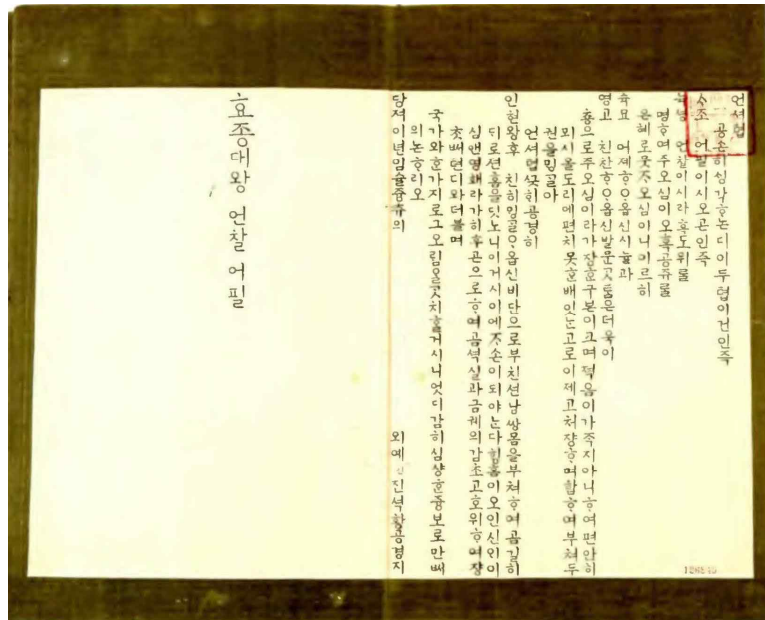 언셔협
공손히싱각ᄒᆞ논디이두협이건인즉
ᄉᆞ조 어필이시오곤인즉
언찰이시라혹도위를
명ᄒᆞ여주오심이오혹공쥬를
은혜로웃ᄌᆞ오심이니미르히
슉묘 어졔ᄒᆞᄋᆞᆸ신시늘과
영고 친찬ᄒᆞᄋᆞᆸ신발문ᄀᆞᆺᄐᆞᆷ은더욱이
춍으로주오심이라가쟝ᄒᆞᆫ구본이크며젹음이가죽지아니ᄒᆞ여편안히
뫼시올도리에편치못ᄒᆞᆫ배잇ᄂᆞᆫ고로이제고쳐쟝ᄒᆞ여합ᄒᆞ여부쳐두
권을밍ᄀᆞᆯ아
언셔협ᄭᅳᆺᄒᆡ공경히
인현왕후 친히밍ᄀᆞᆯᄋᆞᆸ신비단으로부친션낭쌍몸을부쳐ᄒᆞ여곰길히
뒤로션홈을딧노니이거시이에ᄌᆞ손이되야ᄂᆞᆫ다힝홈이오인신인이
심앤영홰라가히후곤으로ᄒᆞ여곰셕실과금궤의감초고호위ᄒᆞ여쟝
ᄎᆞᆺ배현디와더블며
국가와ᄒᆞᆫ가지로그오림오ᄅᆞᆺ치ᄒᆞᆯ거시니엇디감히심샹ᄒᆞᆫ즁보로만ᄡᅥ
의논ᄒᆞ리오
당져이년임슐즁츄의 외예 진셕황공경지
효죵대왕 언찰 어필